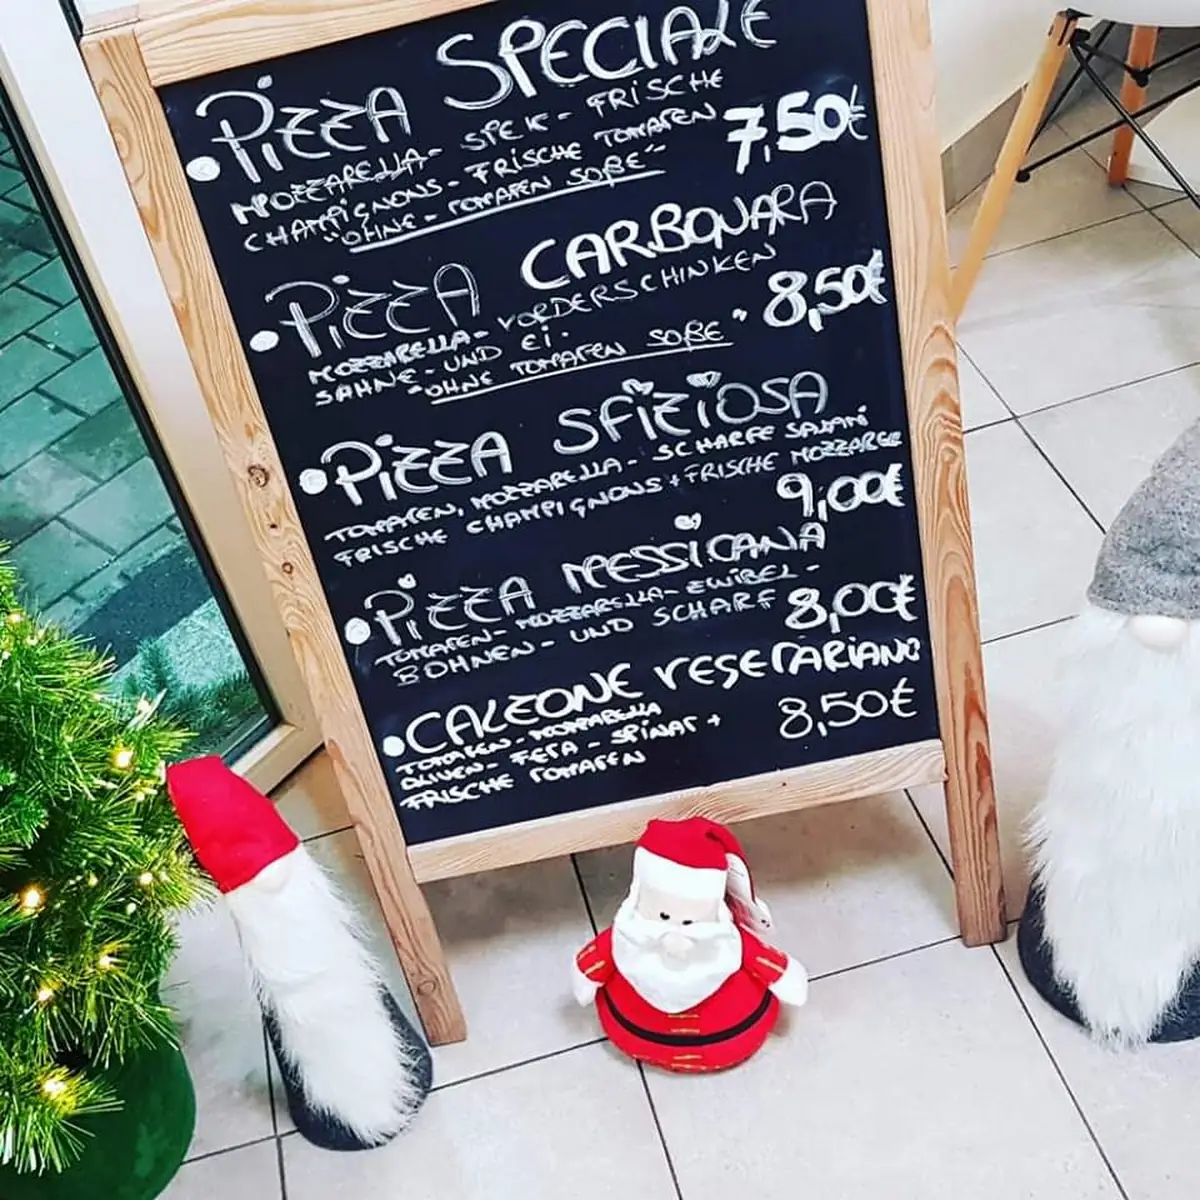 PIZZA SPECIALE
MOZZARELLA - SPEK - FRISCHE
CHAMPIGNONS - FRISCHE TOMATEN
"OHNE - TOMATEN SOßE"
7,50€
PIZZA CARBONARA
MOZZARELLA - VORDERSCHINKEN
SAHNE - UND EI -
"OHNE TOMATEN SOßE"
8,50€
PIZZA SFIZIOSA
TOMATEN, MOZZARELLA - SCHARFE SALAMI
FRISCHE CHAMPIGNONS + FRISCHE
9,00€
PIZZA MESSICANA
TOMATEN - MOZZARELLA - ZWIBEL -
BOHNEN - UND SCHARF
8,00€
CALZONE VEGETARIANO
TOMATEN - MOZZARELLA
OLIVEN - FETA - SPINAT +
FRISCHE TOMATEN
8,50€